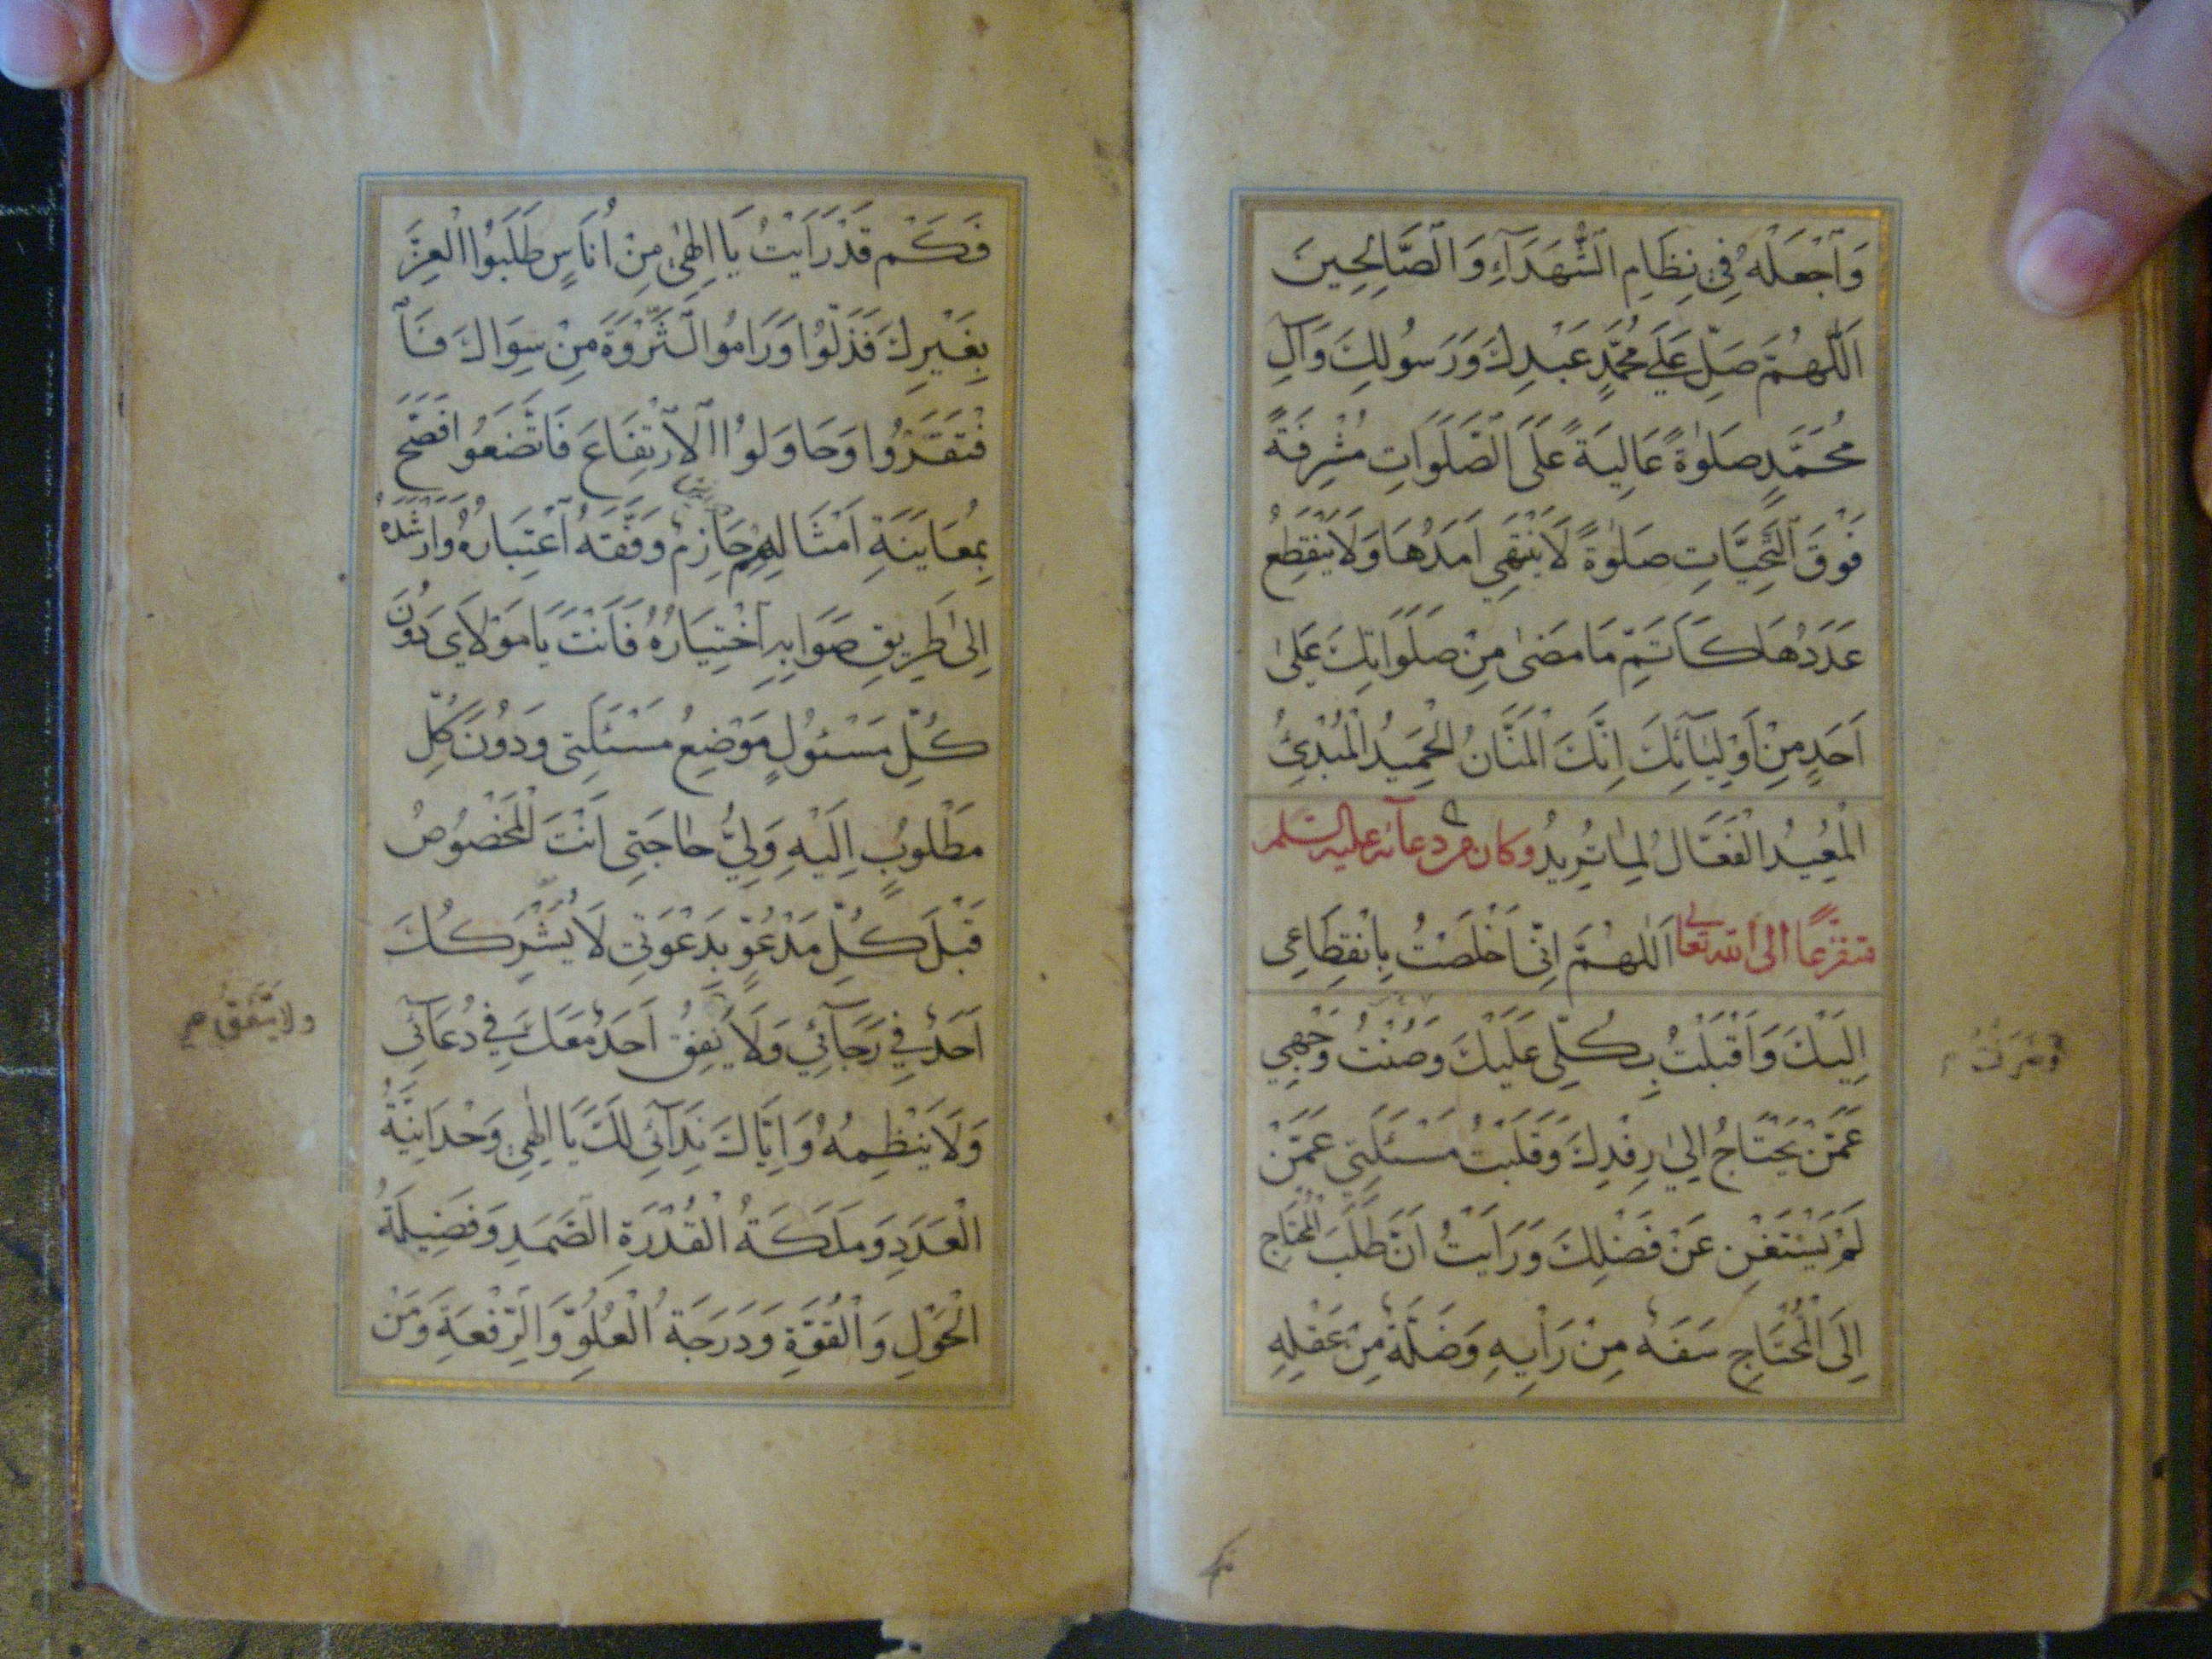 وَاَجْعَلْهُ فِي نِظَامِ الشُّهَدَآءِ وَالصَّالِحِينَ
اَللّٰهُمَّ صَلِّ عَلَى مُحَمَّدٍ عَبْدِكَ وَرَسُولِكَ وَآلِ
مُحَمَّدٍ صَلٰوةً عَالِيَةً عَلَى الصَّلَوَاتِ مُشْرِفَةً
فَوْقَ التَّحِيَّاتِ صَلٰوةً لَايَنْتَهِي اَمَدُهَا وَلَايَنْقَطِعُ
عَدَدُهَا كَاَتَمِّ مَا مَضٰى مِنْ صَلَوَاتِكَ عَلٰى
اَحَدٍ مِنْ اَوْلِيَآئِكَ اِنَّكَ الْمَنَّانُ الْحَمِيدُ الْمُبْدِئُ
الْمُعِيدُ الْفَعَّالُ لِمَا تُرِيدُ وكان من دعائه عليه السلم
متفزعًا الى الله تعالى اَللّٰهُمَّ اِنِّي اَخْلَصْتُ بِانْقِطَاعِي
اِلَيْكَ وَاَقْبَلْتُ بِكُلِّي عَلَيْكَ وَصُنْتُ وَجْهِي
وَصَرَفْتُ
عَمَّنْ يَحْتَاجُ اِلٰى رِفْدِكَ وَقَلَبْتُ مَسْئَلَتِي عَمَّنْ
لَمْ يَسْتَغْنِ عَنْ فَضْلِكَ وَرَاَيْتُ اَنَّ طَلَبَ الْمُحْتَاجِ
اِلَى الْمُحْتَاجِ سَفَهٌ مِنْ رَاْيِهِ وَضَلَّةٌ مِنْ عَقْلِهِ
فَكَمْ قَدْ رَاَيْتُ يَا اِلٰهِي مِنْ اُنَاسٍ طَلَبُوا الْعِزَّ
بِغَيْرِكَ فَذَلُّوا وَرَامُوا الثَّرْوَةَ مِنْ سِوَاكَ فَا
فْتَقَرُوا وَحَاوَلُوا الْاِرْتِفَاعَ فَاتَّضَعُوا فَصَحَّ
بِمُعَايَنَةِ اَمْثَالِهِمْ حَازِمٌ وَفَّقَهُ اَعْتِبَارُهُ وَاَرْشَدَهُ
اِلٰى طَرِيقِ صَوَابِهِ اَخْتِيَارُهُ فَاَنْتَ يَا مَوْلَاىَ دُونَ
كُلِّ مَسْئُولٍ مَوْضِعُ مَسْئَلَتِى وَدُونَ كُلِّ
مَطْلُوبٍ اِلَيْهِ وَلِيُّ حَاجَتِى اَنْتَ الْمَخْصُوصُ
قَبْلَ كُلِّ مَدْعُوٍّ بِدَعْوَتِي لَا يُشْرِكُكَ
اَحَدٌ فِي رَجَآئِي وَلَا يَفِقُ اَحَدٌ مَعَكَ فِي دُعَآئِي
ولا يتفق
وَلَا يَنْظِمُهُ وَاِيَّاكَ نِدَآئِى لَكَ يَا اِلٰهِي وَحْدَانِيَّةُ
الْعَدَدِ وَمَلَكَةُ الْقُدْرَةِ الصَّمَدِ وَفَضِيلَةُ
الْحَوْلِ وَالْقُوَّةِ وَدَرَجَةُ الْعُلُوِّ وَالرِّفْعَةِ وَمَنْ